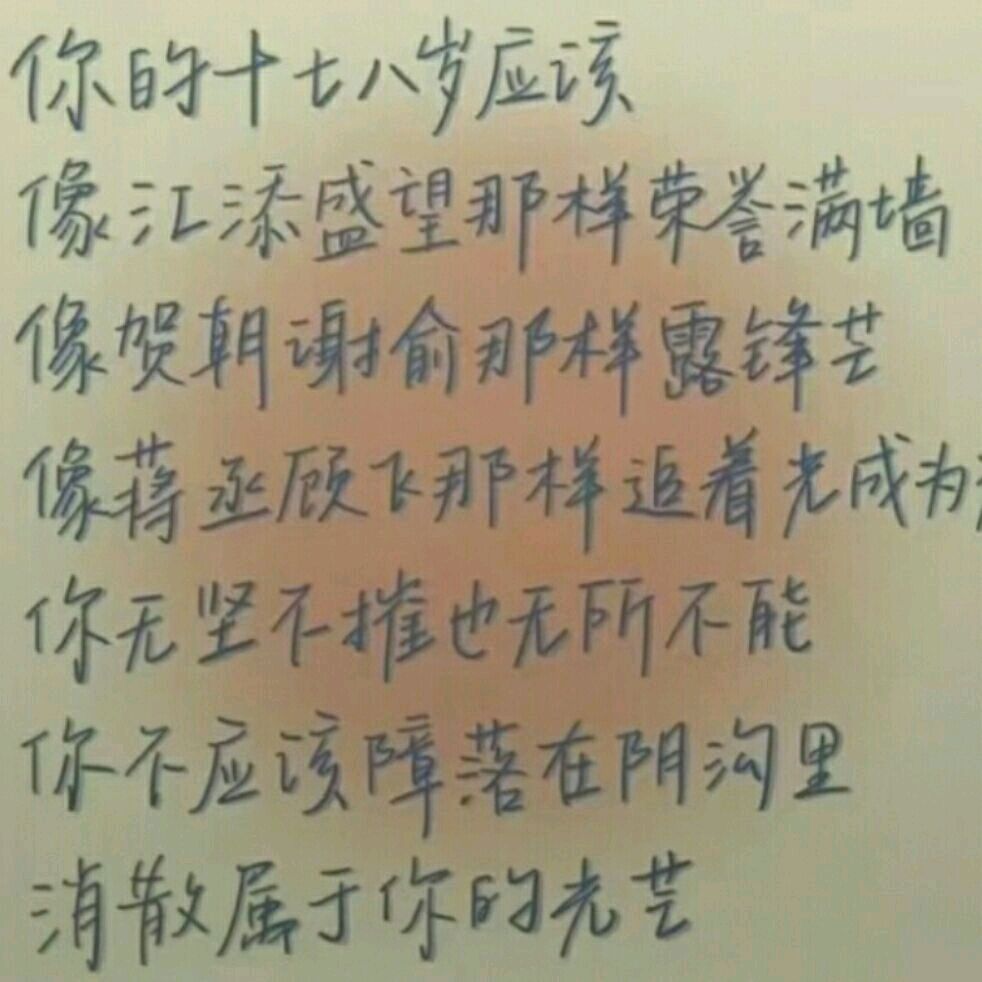 你的十七八岁应该
像江添盛望那样荣誉满墙
像贺朝谢俞那样露锋芒
像蒋丞顾飞那样追着光成为
你无坚不摧也无所不能
你不应该障落在阴沟里
消散属于你的光芒